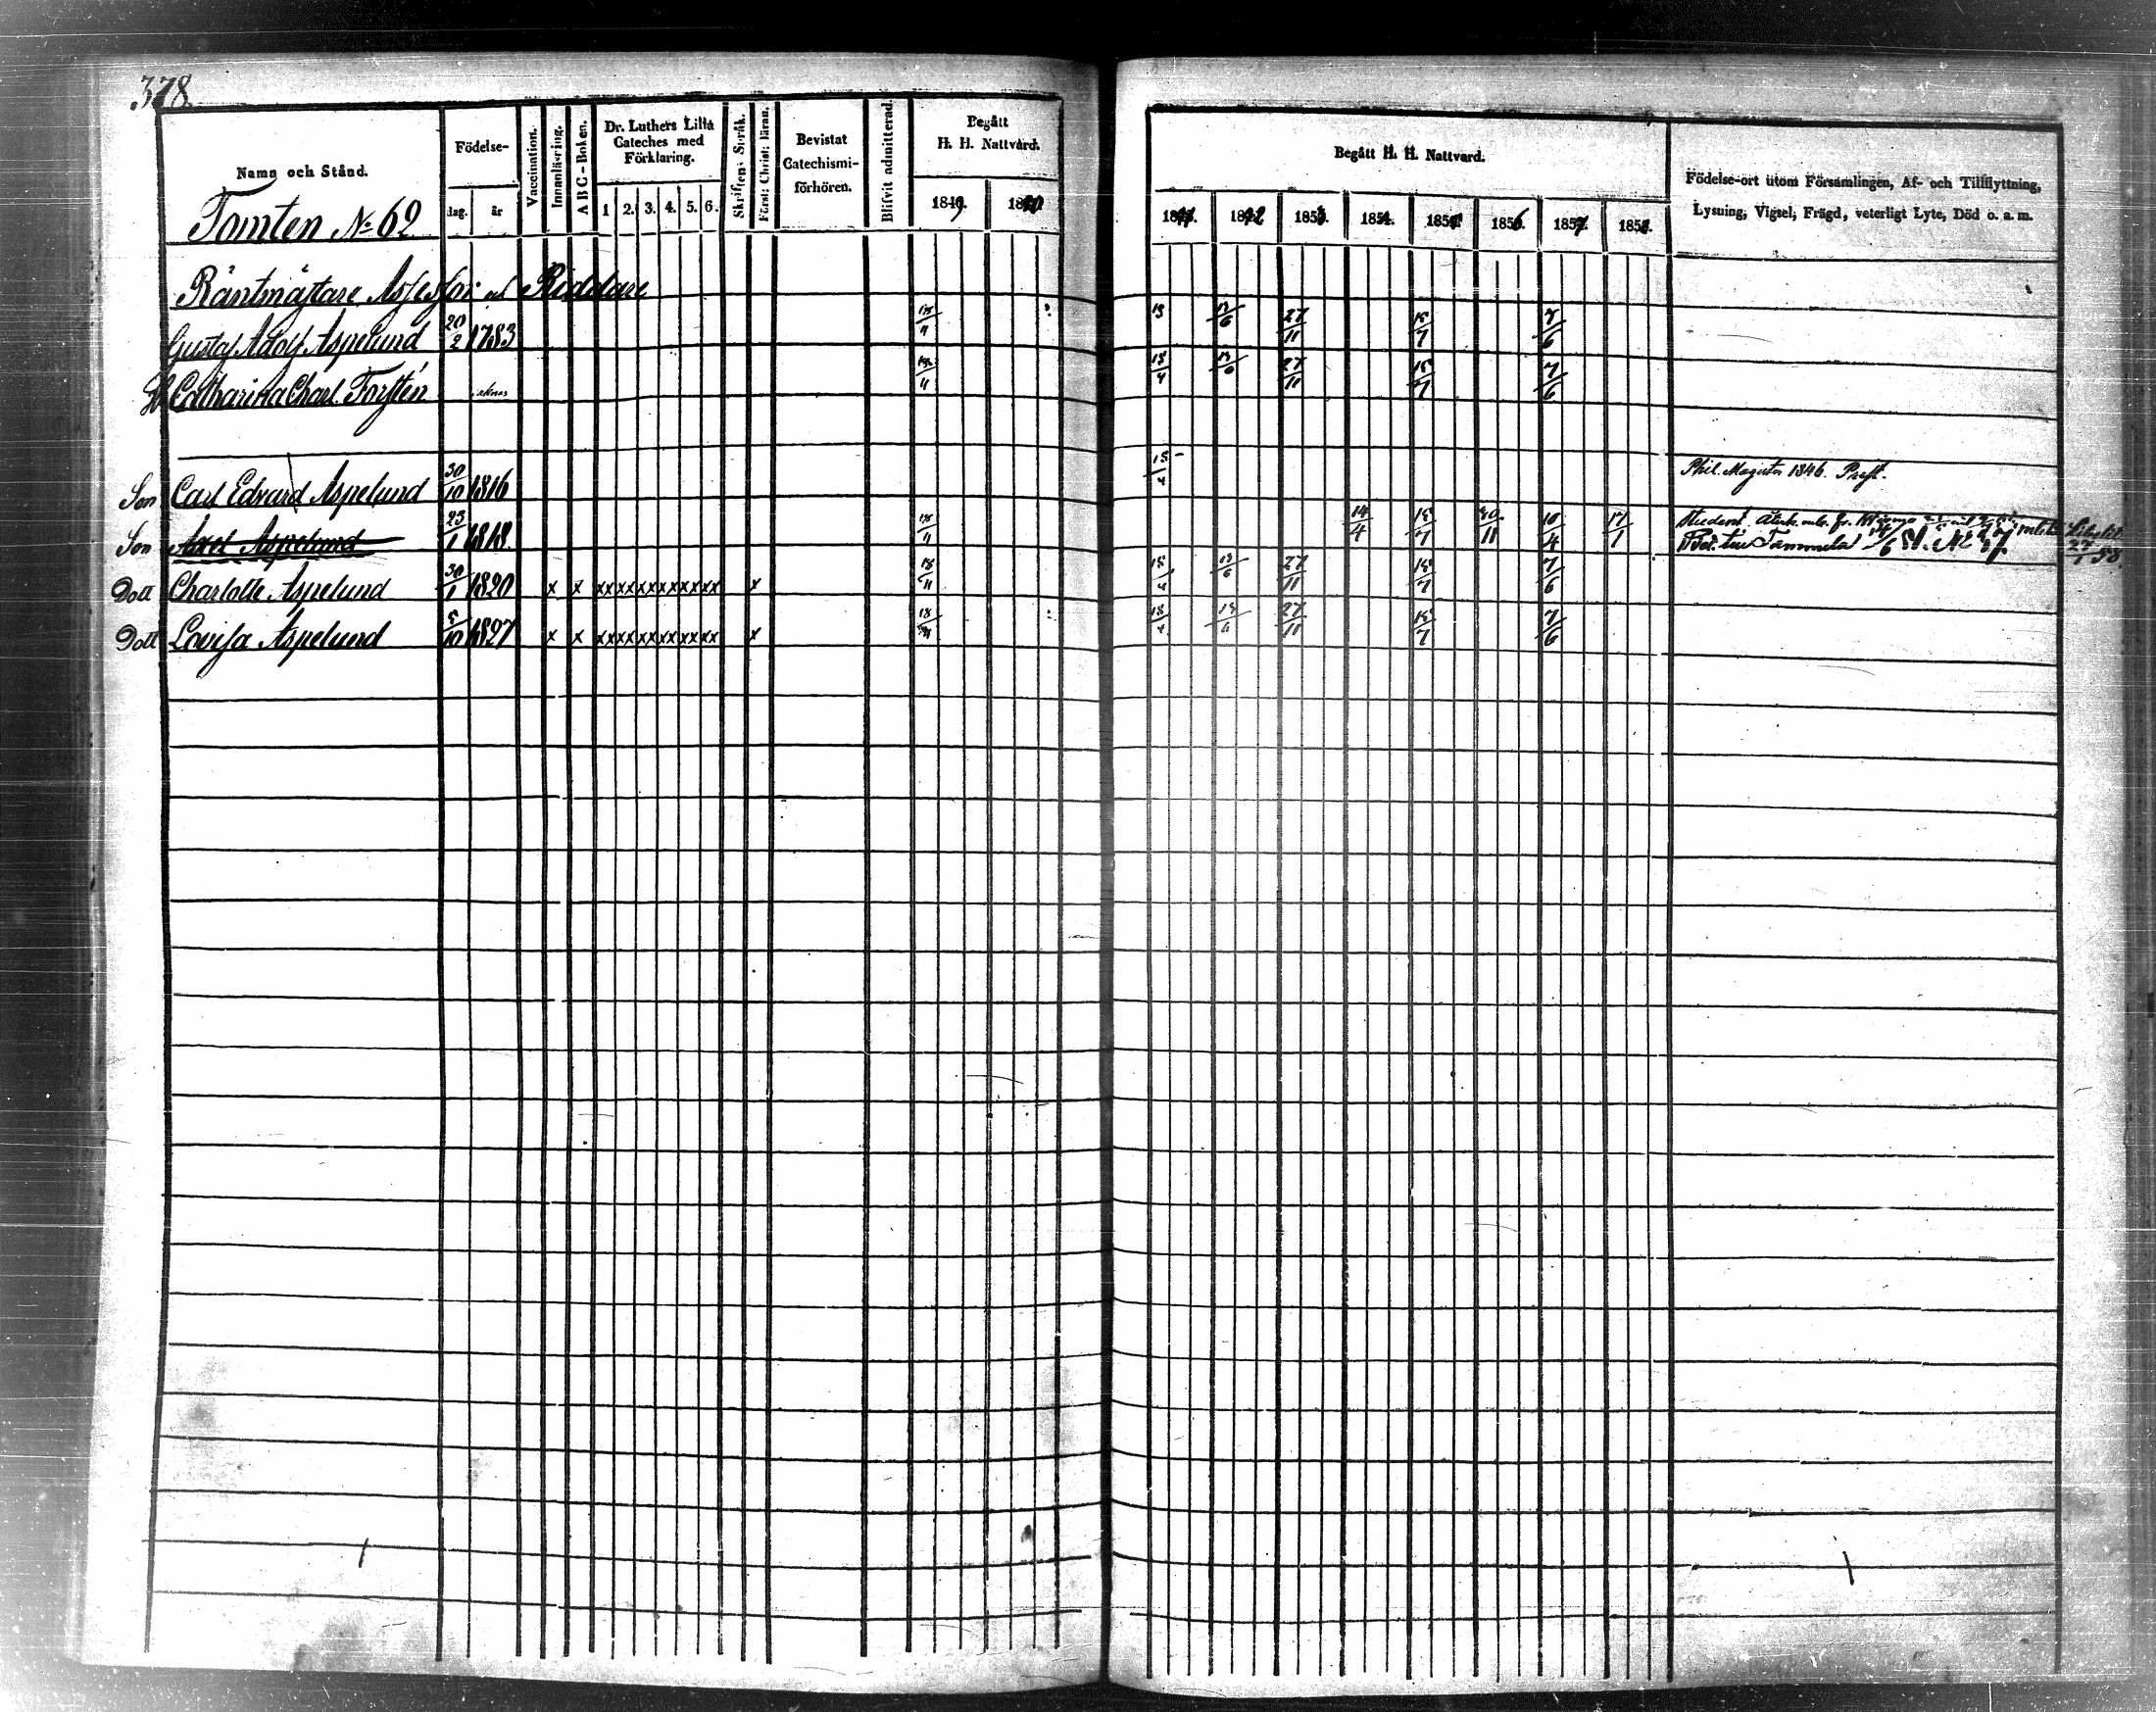 378
Namn och Stånd.
Födelse-
dag. år
Vaccination.
Innanläsning.
A B C-Boken.
Dr. Luthers Lilla
Cateches med
Förklaring.
1 2. 3. 4. 5. 6.
Bevistat
Catechismi-
förhören.
Blifvit admitterad.
Begått
H. H. Nattvard.
1849
Begått H. H. Nattvard.
1853. 1854. 1855. 1856. 1857. 1858.
Födelse-ort utom Församlingen, Af- och Tillflyttning,
Lysning, Vigsel, Frägd, veterligt Lyte, Död o. a. m.
Tomten No 62
Räntmästare Assessor och Riddare
Gustaf Adolf Aspelund 20/2 1783 27/11 15/7 7/6
H Catharina Charl. Forstén 27/11 15/7 7/6
Son Carl Edvard Aspelund 30/10 1816 15/4 Phil. Magister 1846. Präst.
Son Axel Aspelund 23/1 1818 14/4 15/7 30/11 10/4 17/1 Student
Tammela
Dott Charlotte Aspelund 30/1 1820 x x xx xx xx xx xx xx x 18/11 15/4 13/6 27/11 15/7 7/6
Dott Lovisa Aspelund 5/10 1827 x x xx xx xx xx xx xx x 27/11 15/7 7/6